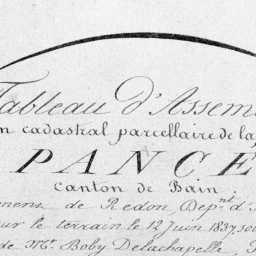 Tableau d'Assem
n cadastral parcellaire de la
PANCE
Canton de Bain
mens de Redon Dep.nt d'
ur le terrain le 12 Juin 1837 sou
de Mr. Boby Delachapelle,